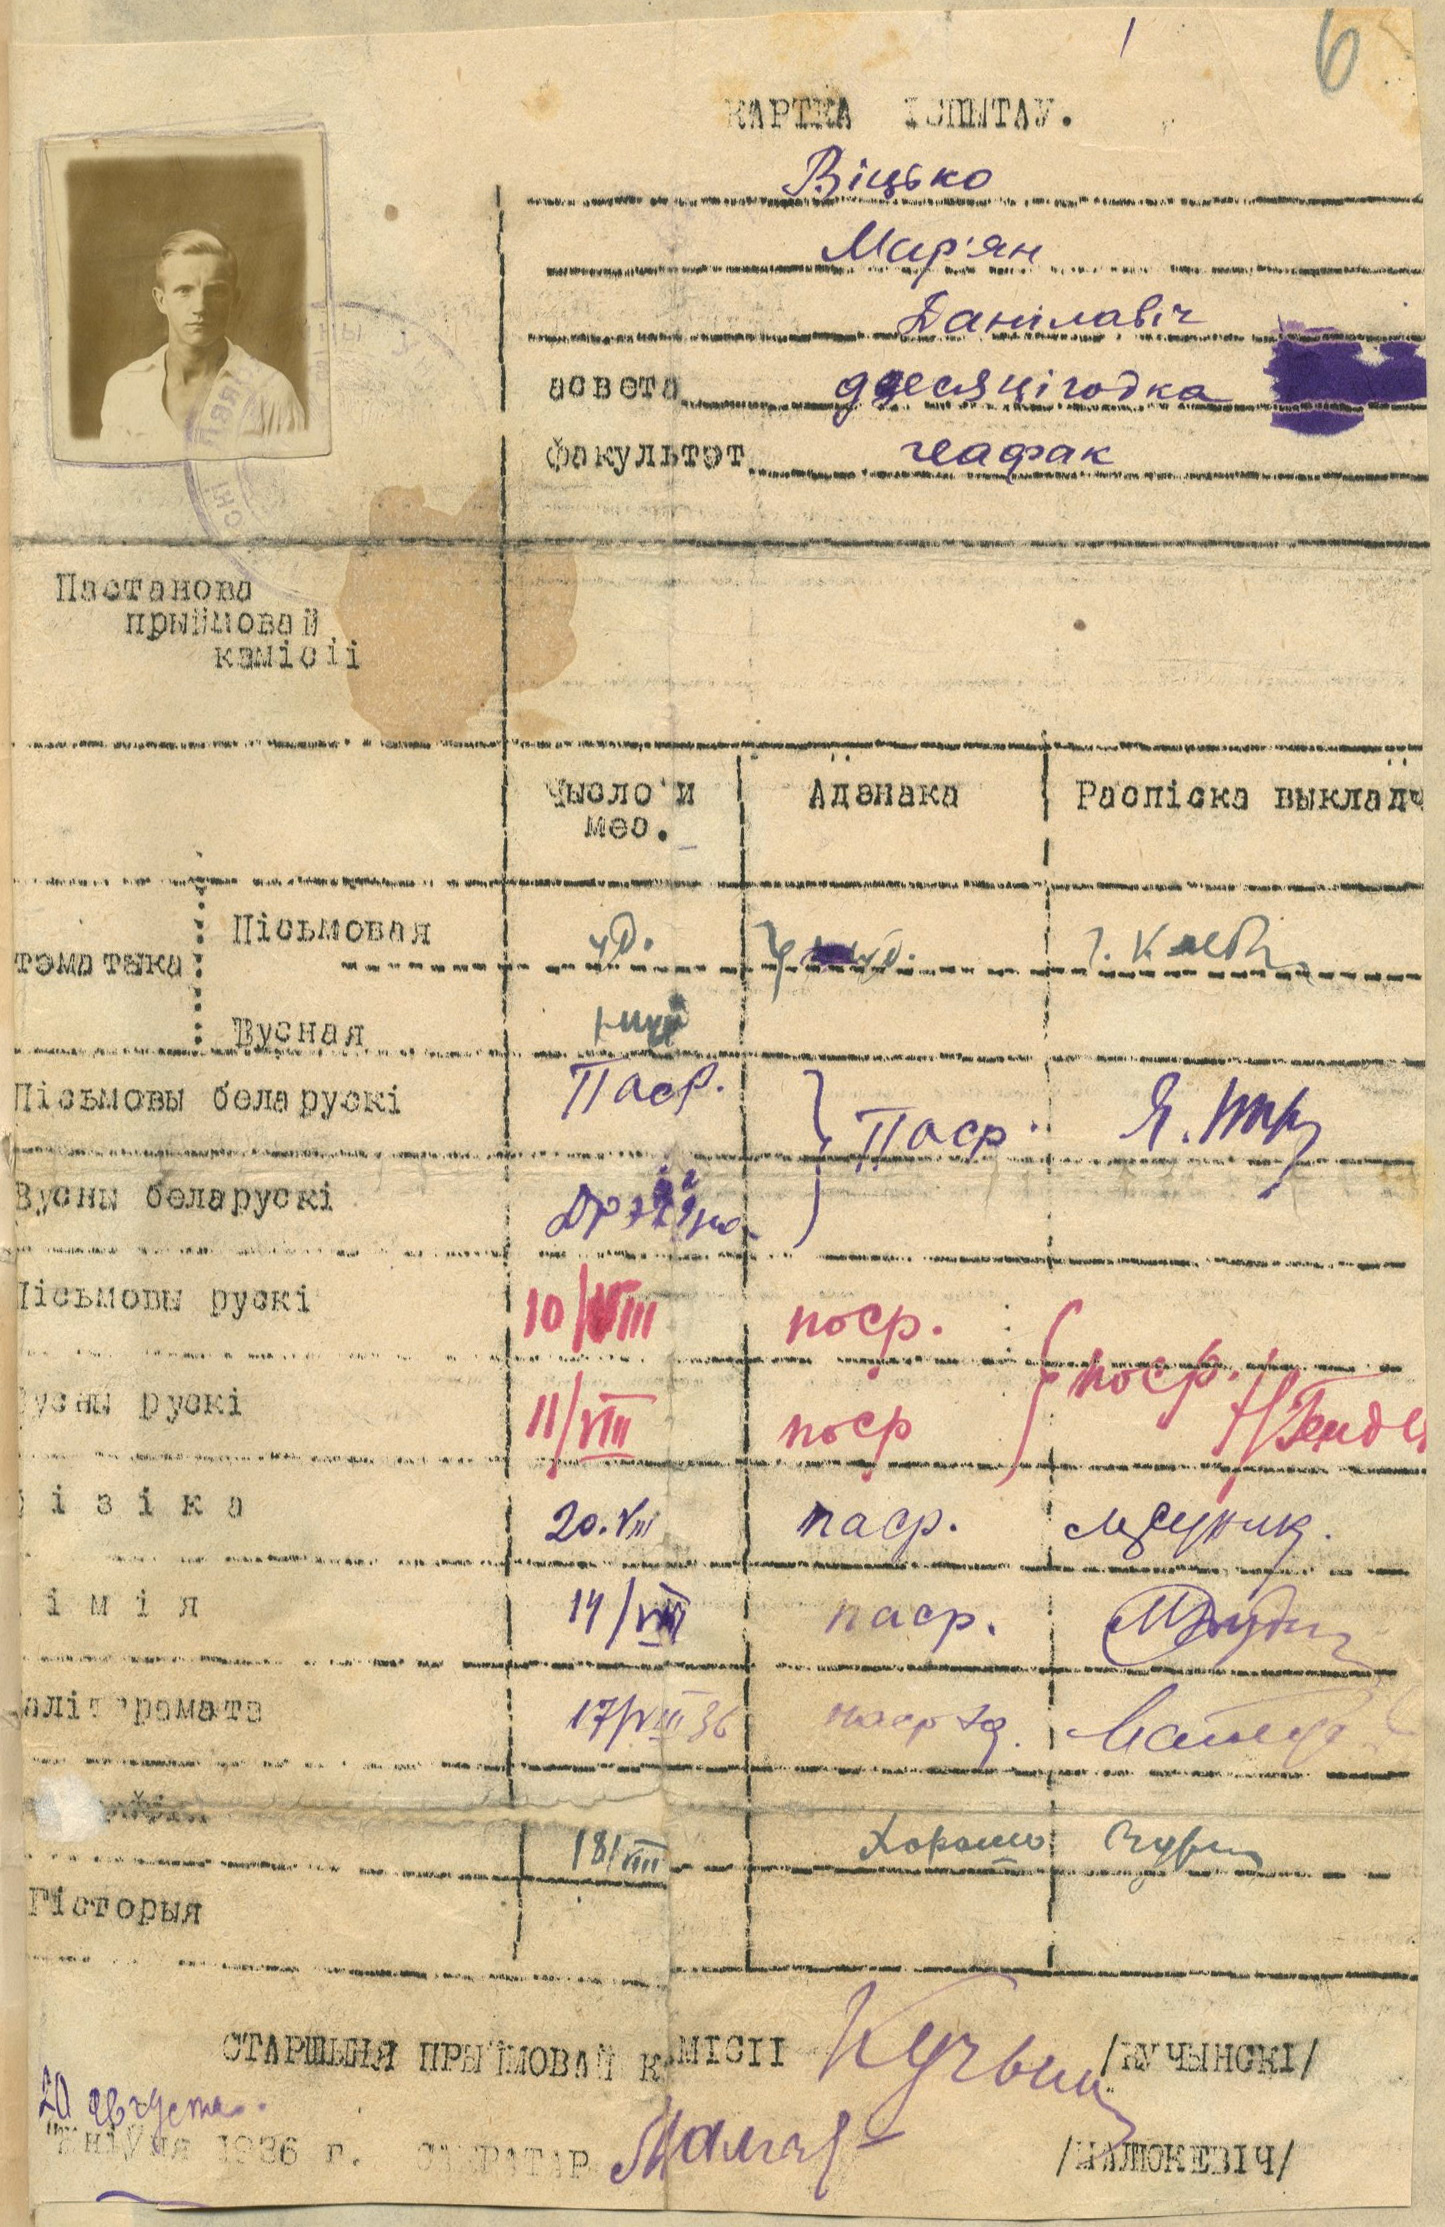 6
КАРТКА ІСПЫТАУ.
Віцько
Мар'ян
Данілавіч
асвета дзесяцігодка
факультэт геафак
Пастанова
прыймовай
камісіі
Чысло и
мес.
Адзнака
Распіска выклад
тэматыка
Пісьмовая уд.
Вусная
Пісьмовы беларускі Паср. Паср.
Вусны беларускі
Пісьмовы рускі 10/VIII поср. поср.
Вусны рускі 11/VIII поср
ізіка 20.VIII паср.
імія 14/VIII паср.
алітграмата 17/VIII 36
18/VIII Хорошо
Гісторыя
СТАРШЫНЯ ПРЫЙМОВАЙ КАМІСІІ /КУЧЫНСКІ/
20 августа.
жніўня 1936 г. САКРАТАР /МАЛЮКЕВІЧ/